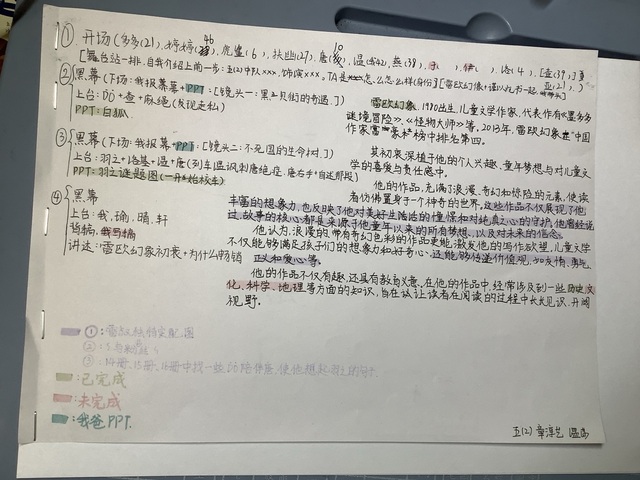 ① 开场(多多(21), 婷婷( 46 ), 虎鲨(6), 扶幽(27), 唐( 10 ), 温(
[舞台站一排, 自我介绍上前一步: 五(2)中队×××, 饰演×××。TA是
② 黑幕(下场: 我报幕 + PPT: [镜头一: 黑贝街的奇遇.]
上台: DO + 查 + 麻绳(发现走私)
PPT: 白狐.
③ 黑幕(下场: 我报幕 + PPT: [镜头二: 不死国的生命树.]
上台: 羽之 + 洛基 + 温 + 唐(列车温讽刺唐绝症.
PPT: 羽之谜题图(
④ 黑幕
上台: 我, 喻, 晴, 轩
背稿, 我写稿
讲述: 雷欧幻象初衷 + 为什么畅销
雷欧幻象, 1980出生, 儿童文学作家, 代表作有《墨多多
谜境冒险》、《怪物大师》等, 2013年, 雷欧幻象
作家富豪榜榜中排名第四。
其初衷深植于他的个人兴趣、童年梦想与对儿童文
学的喜爱与责任感中。
他的作品, 充满了浪漫、奇幻和惊险的元素, 使读
者仿佛置身于一个神奇的世界, 这些作品不仅展现了他
丰富的想象力, 也反映了他对美好生活的憧憬和对纯真之心的守护, 他曾经说
过, 故事的核心都是来源于他童年以来的所有梦想, 以及对未来的信念。
他认为, 浪漫的, 带有奇幻色彩的作品更能激发他的写作欲望, 儿童文学
不仅能够满足孩子们的幻想力和好奇心, 还能够传递价值观, 如友情、勇气、
正义和爱心等。
他的作品不仅有趣, 还具有教育意义, 在他的作品中, 经常涉及到一些历史、文
化、科学、地理等方面的知识, 旨在让读者在阅读的过程中长见识, 开阔
视野。
①: 雷欧
②:
③: 14册, 15册,
: 已完成
: 未完成
: 我爸PPT.
五(2)